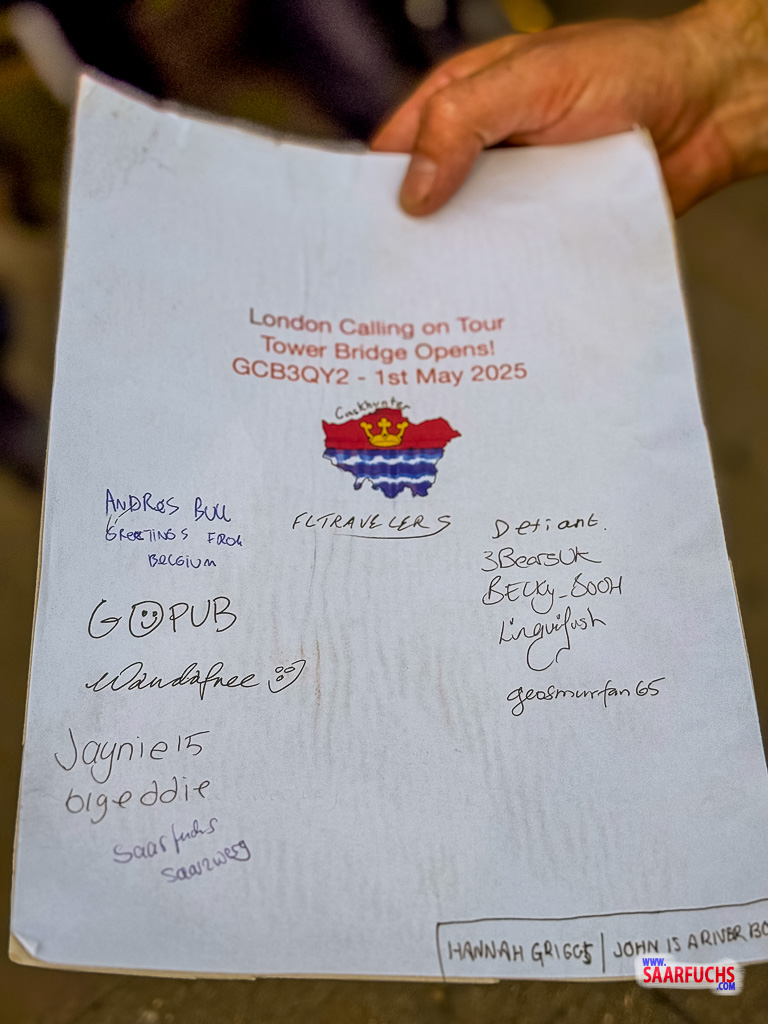 London Calling on Tour
Tower Bridge Opens!
GCB3QY2 - 1st May 2025
Cashhunter
ANDROS BULL
GREETINGS FROM
BELGIUM
FLTRAVELERS
Defiant.
3BearsUK
BECKy_BOOH
Linguifush
geosmurfan65
GOPUB
Wandafree
Jaynie15
bigeddie
saarfuchs
saarzwerg
HANNAH GRIGGS | JOHN IS A RIVER BO
WWW.
SAARFUCHS
.COM